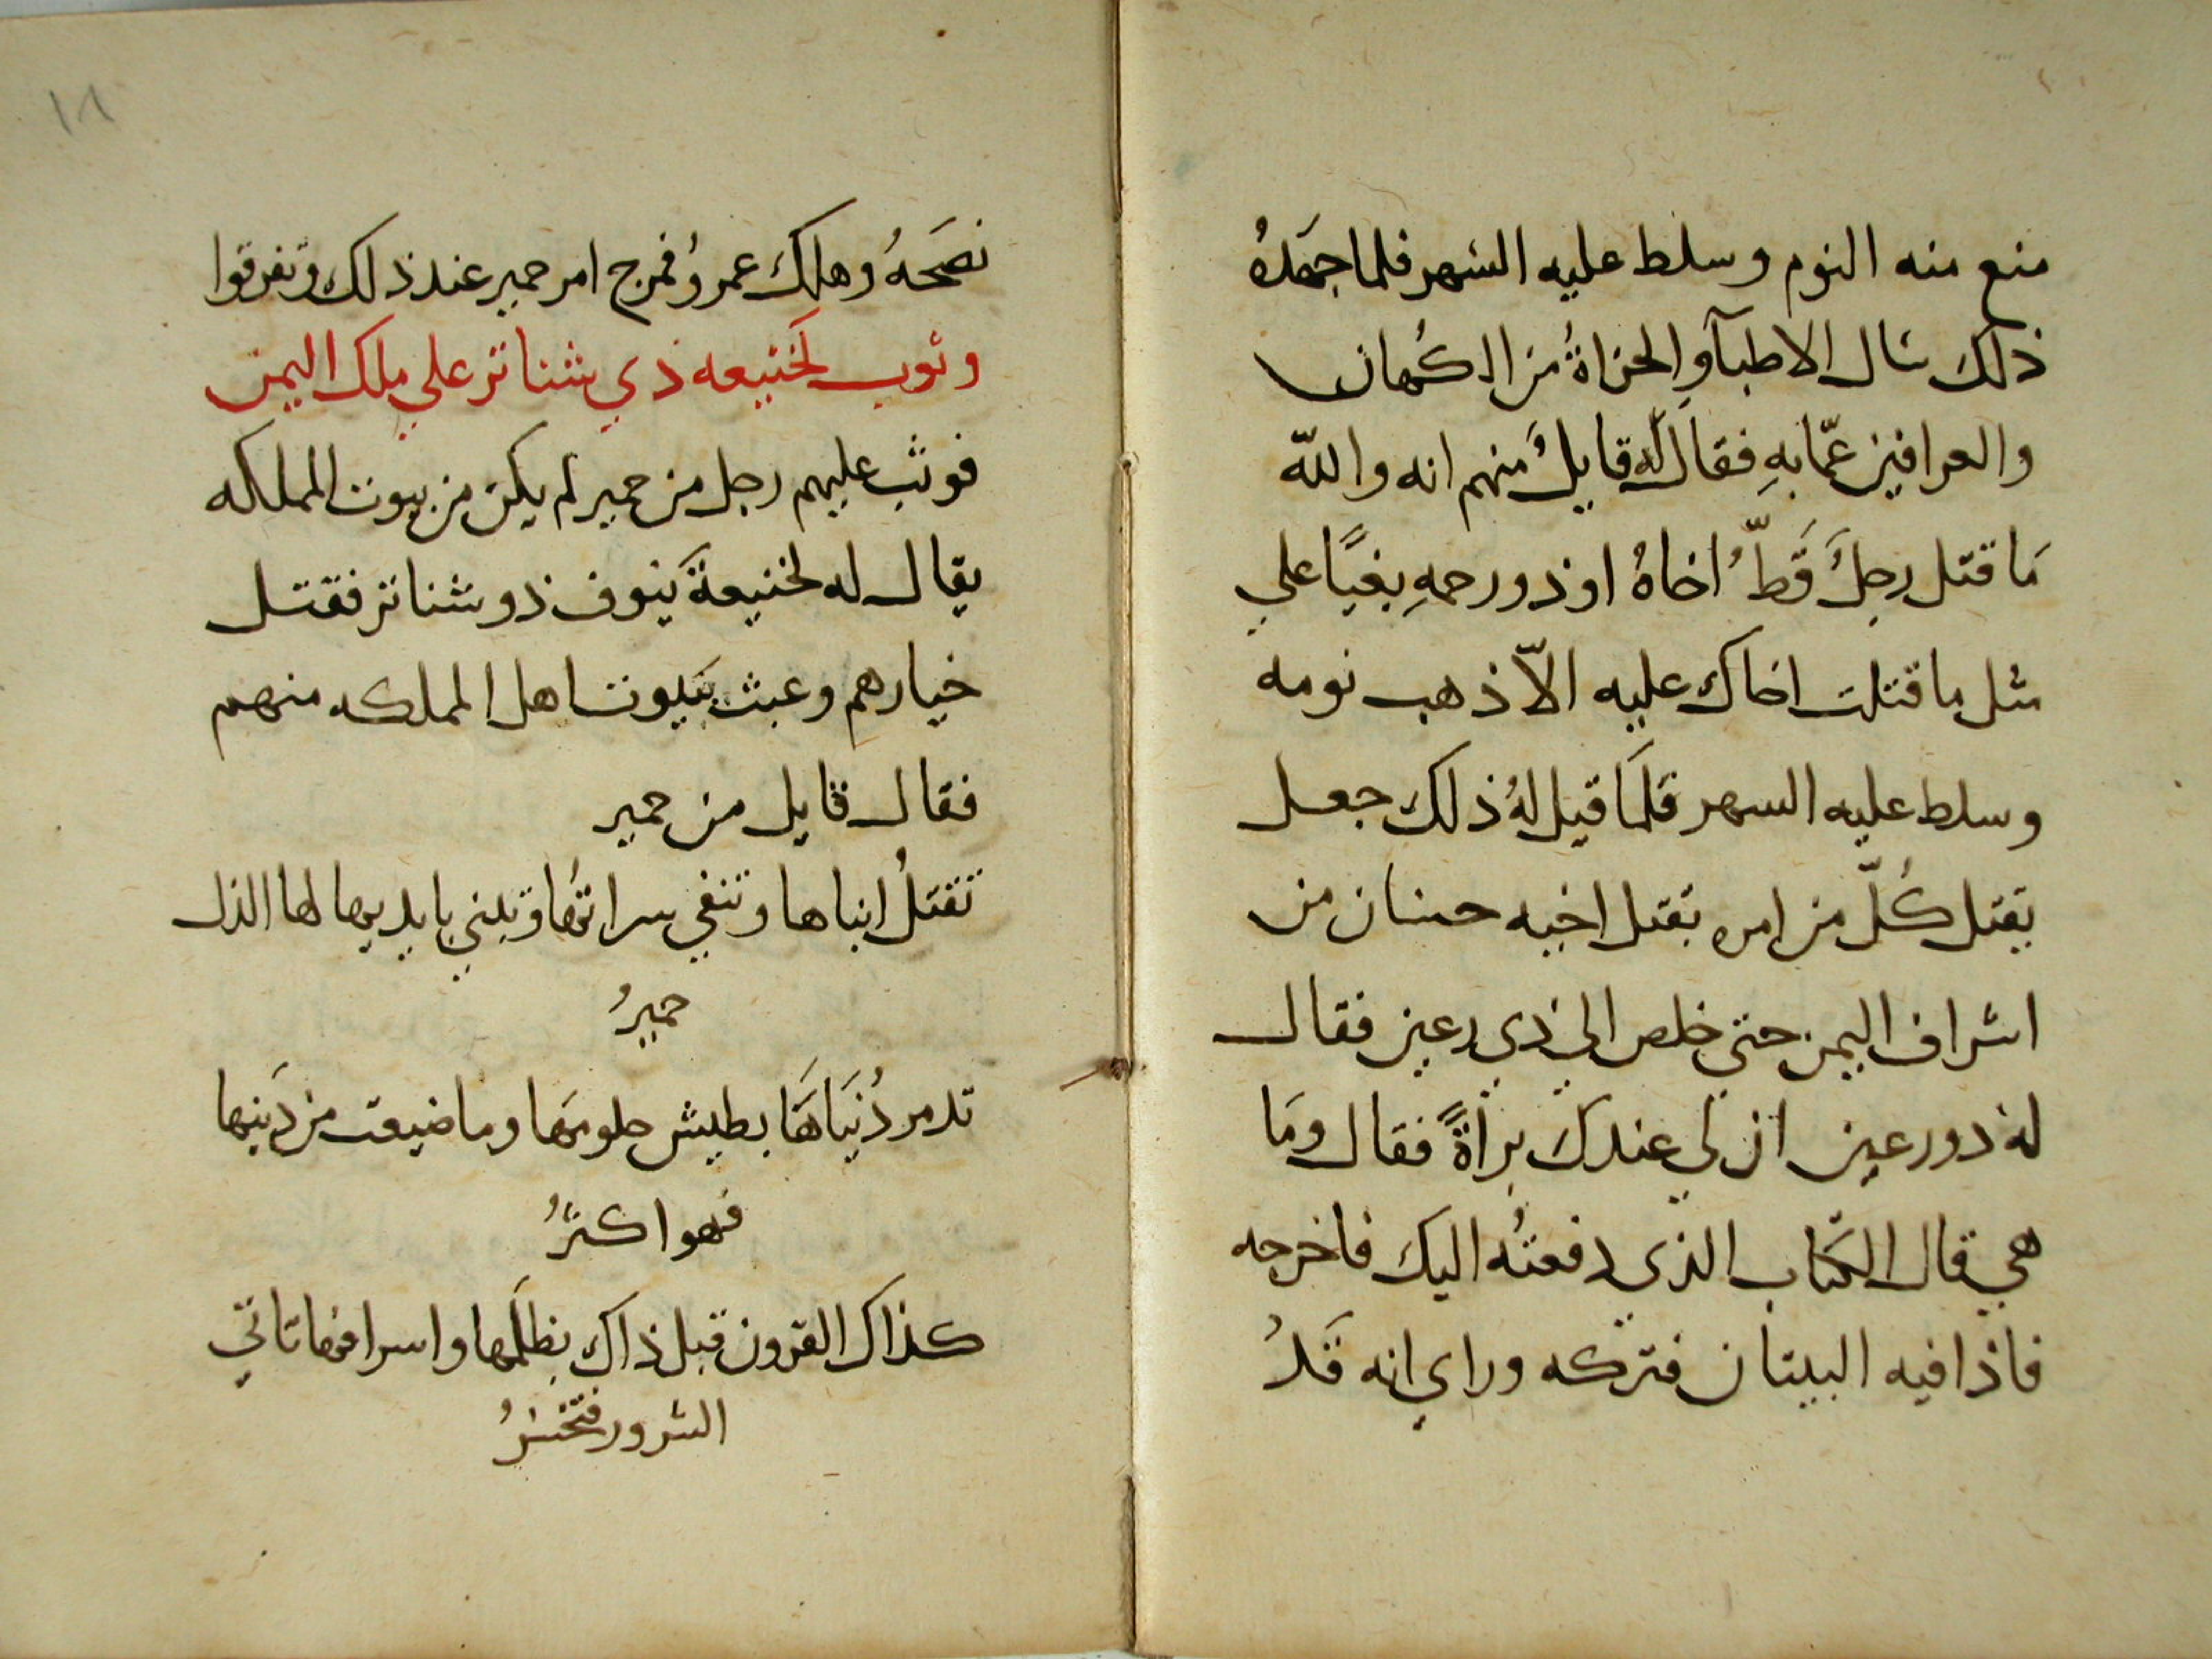 منع منه النوم وسلط عليه السهر فلما جهدهُ
ذلك سال الاطبآ والحزاةُ من الكُهان
والعرافين عمّا بهِ فقال له قايلٌ منهم انه والله
مَا قتل رجلٌ قَطّ اخاهُ او ذو رحمهِ بغيًا علي
مثل ما قتلت اخاك عليه الاّ ذهب نومه
وسلط عليه السهر فلمَا قيل لهُ ذلك جعل
يقتل كُلّ من امره بقتل اخيه حسان من
اشراف اليمن حتي خلص الي ذي رعين فقال
لهُ ذو رعين ان لي عندك براةً فقال ومَا
هي قال الكتاب الذي دفعتُه اليك فاخرجه
فاذا فيه البيتان فتركه وراي انه قَدْ
١٨
نصَحهُ وهلك عمرو فمرج امر حمير عند ذلك وتفرقوا
وثوب لخنيعه ذي شناتر علي ملك اليمن
فوثب عليهم رجل من حمير لم يكن من بيوت المملكه
يقال له لخنيعة ينوف ذو شناتر فقتل
خيارهم وعبث ببيوت اهل المملكه منهم
فقال قايل من حمير
تقتلُ ابناها وتنفي سراتها وتبني بايديها لها الذل
حميرُ
تدمر دُنيَاهَا بطيش حلومَها وما ضيعت من دَينها
فهو اكثرُ
كذاك القرون قبل ذاك بظلمها واسرافها تاتي
الشرور فتخسرُ